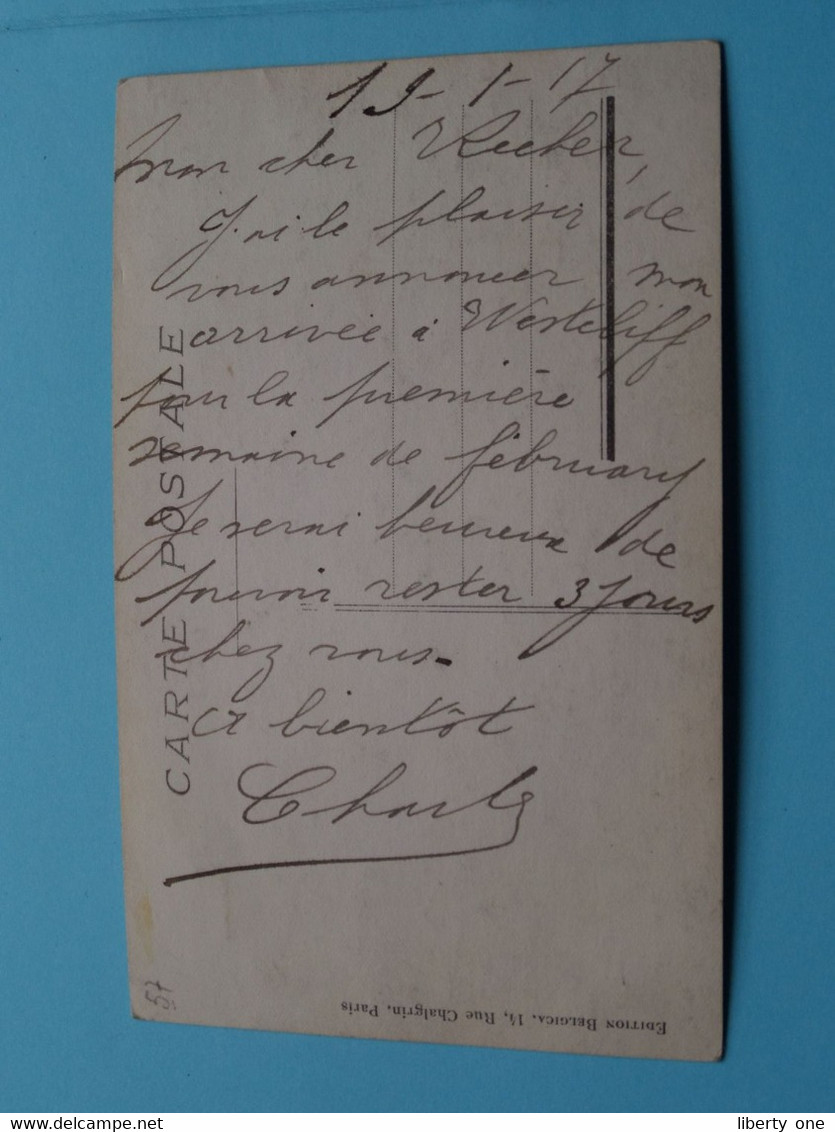 19-1-17
Mon cher
J'ai le plaisir de
vous annoncer mon
arrivée à Westcliff
pour la première
semaine de february
Je serai heureux de
pouvoir rester 3 jours
chez vous.
A bientôt
Charles
CARTE POSTALE
EDITION BELGICA, 14, Rue Chalgrin, Paris
57
liberty one